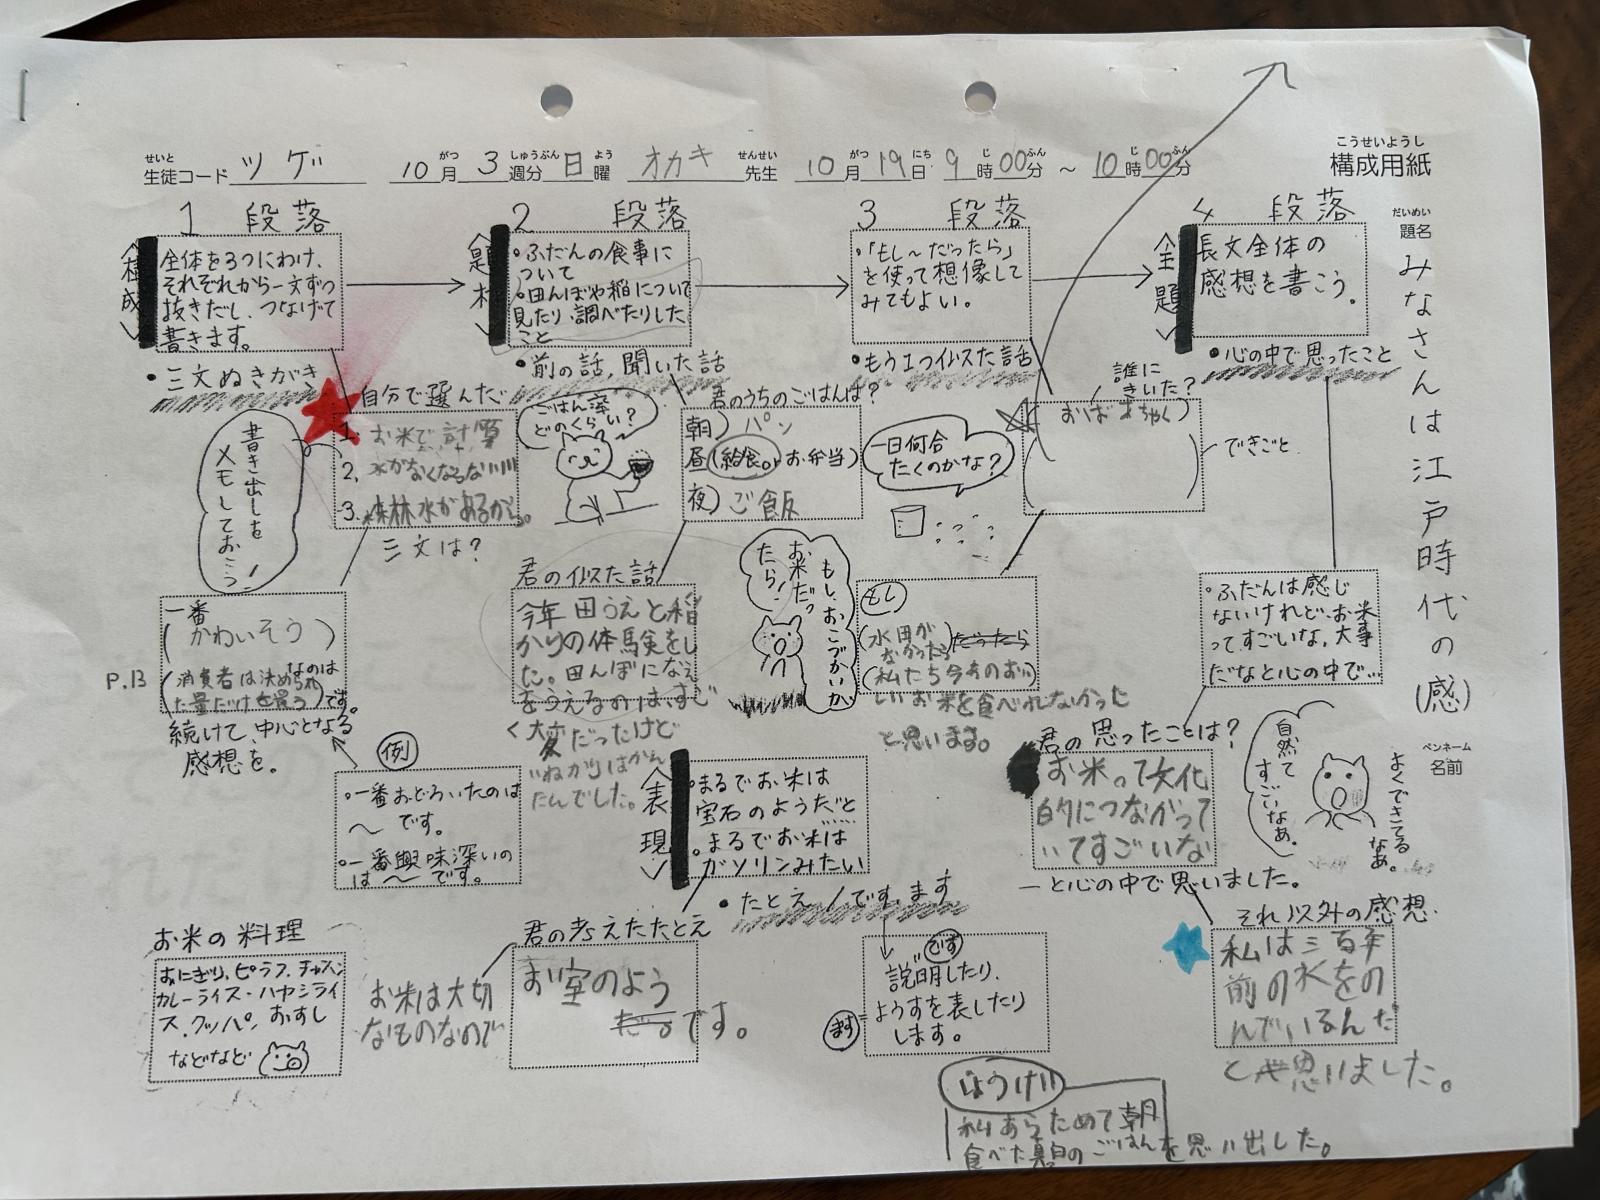 こうせいようし
構成用紙
せいと
生徒コード ツゲ
がつ しゅうぶん よう
10月 3週分 日曜
せんせい
オカキ 先生
がつ にち じ ふん じ ふん
10月19日 9時00分 ～ 10時00分
だいめい
題名
みなさんは江戸時代の(感)
ペンネーム
名前
1 段落
〈構成〉
全体を3つにわけ、
それぞれから一文ずつ
抜きだし、つなげて
書きます。
・三文ぬきがき
自分で選んだ
1. お米で計算
2. 水がなくならない
3. 森林水があるから。
三文は？
書き出しを
メモしておこう！
一番
(かわいそう)
なのは
(消費者は決められ
た量だけを買う)です。
P.13
続けて、中心となる
感想を。
例
・一番おどろいたのは
～です。
・一番興味深いの
は～です。
お米の料理
おにぎり、ピラフ、チャーハン
カレーライス・ハヤシライ
ス、クッパ、おすし
などなど
2 段落
〈題材〉
・ふだんの食事に
ついて
・田んぼや稲について
見たり、調べたりした
こと
・前の話、聞いた話
ごはん茶
どのくらい？
君のうちのごはんは？
朝) パン
昼(給食or お弁当)
夜) ご飯
君の似た話
今年田うえと稲
かりの体験をし
た。田んぼになえ
をうえるのはすご
く大変だったけど
いねかりはかん
たんでした。
〈表現〉
・まるでお米は
宝石のようだと
・まるでお米は
ガソリンみたい
・たとえ/です、ます
君の考えたたとえ
お米は大切
なものなので
お宝のよう
です。
です
説明したり、
ます
ようすを表したり
します。
3 段落
・「もし～だったら」
を使って想像して
みてもよい。
・もう1つ似た話
誰に
きいた？
おばあちゃん
できごと
一日何合
たくのかな？
もし、おこづかいが
お米だっ
たら！
もし
(水田が
なかったら
(私たち今年のおい
しいお米を食べれなかった
と思います。
4 段落
〈全題〉
長文全体の
感想を書こう。
・心の中で思ったこと
・ふだんは感じ
ないけれど、お米
ってすごいな、大事
だなと心の中で…
君の思ったことは？
お米って文化
的につながって
いてすごいな
―と心の中で思いました。
自然て
すごいなあ。
よくできてる
なあ。
それ以外の感想
私は三百年
前の水をの
んでいるんだ
と思いました。
じょうけい
私あらためて朝
食べた真白のごはんを思い出した。